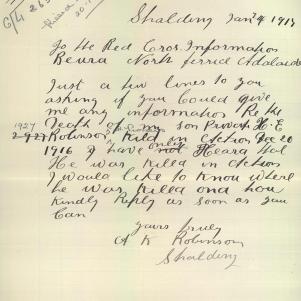 Spalding Jan 4 1917
To the Red Cros Information
Beura North Terrice Adalaide
Just a few lines to you
asking if you Could give
me any information Re the
Death of my son Private H. E
1927
Robinson Killed in Action Dec 20
1916 I have only Heara that
He was Killed in Action
I would like to Know where
he was Killed and how
Kindly Reply as soon as you
Can
yours truly
A K Robinson
Spalding